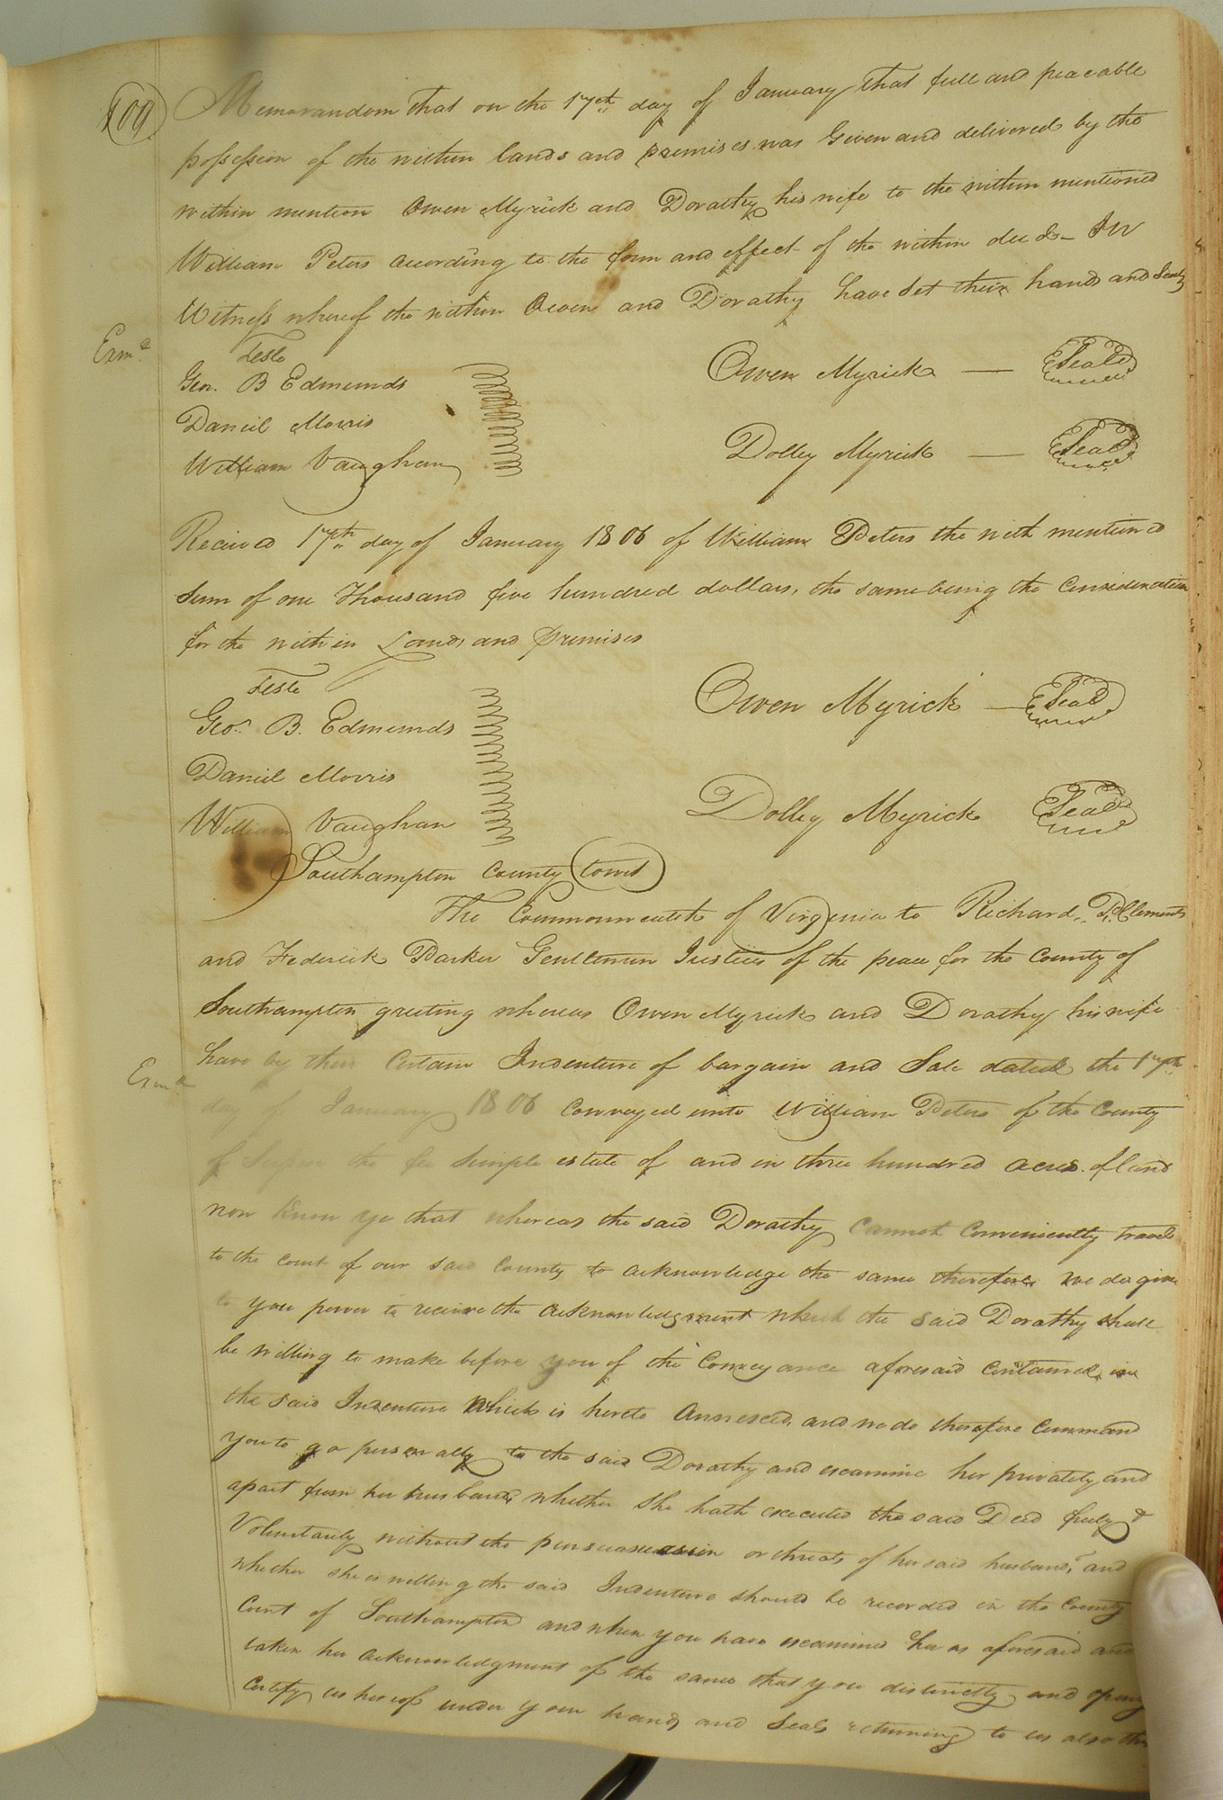 100
Memorandom that on the 17th day of January that full and peaceable
possession of the within lands and premises was Given and delivered by the
within mention Owen Myrick and Dorathy his wife to the within mentioned
William Peters according to the form and effect of the within deeds In
Witness whereof the within Owen and Dorathy have set their hands and Seals
Exmd
Teste
Geo. B Edmunds
Owen Myrick — Seal
Daniel Morris
William Vaughan
Dolley Myrick — Seal
Received 17th day of January 1806 of William Peters the with mentioned
sum of one Thousand five hundred dollars, the same being the Consideration
for the within Lands and premises
Teste
Geo. B. Edmunds
Owen Myrick — Seal
Daniel Morris
William Vaughan
Dolley Myrick Seal
Southampton County Court
The Commonwealth of Virginia to Richard P. Clements
and Frederick Parker Gentlemen Justices of the peace for the County of
Southampton greeting whereas Owen Myrick and Dorathy his wife
Exmd
have by their Certain Indenture of bargain and Sale dated the 17th
day of January 1806 Conveyed unto William Peters of the County
of the fee Simple estate of and in three hundred acres of land
now Know ye that whereas the said Dorathy cannot Conveniently travel
to the court of our said County to acknowledge the same therefore we do give
to you power to receive the acknowledgment which the said Dorathy shall
be willing to make before you of the Conveyance aforesaid Contained in
the said Indenture which is hereto Annexed, and we do therefore Command
you to go personally to the said Dorathy and examine her privately and
apart from her husband, whether She hath executed the said Deed freely &
Voluntarily without the or threats of her said husband, and
whether she is willing the said Indenture should be recorded in the County
Court of Southampton and when you have examined her as aforesaid and
taken her acknowledgment of the same that you distinctly and openly
Certify us hereof under your hands and Seals returning to us also the